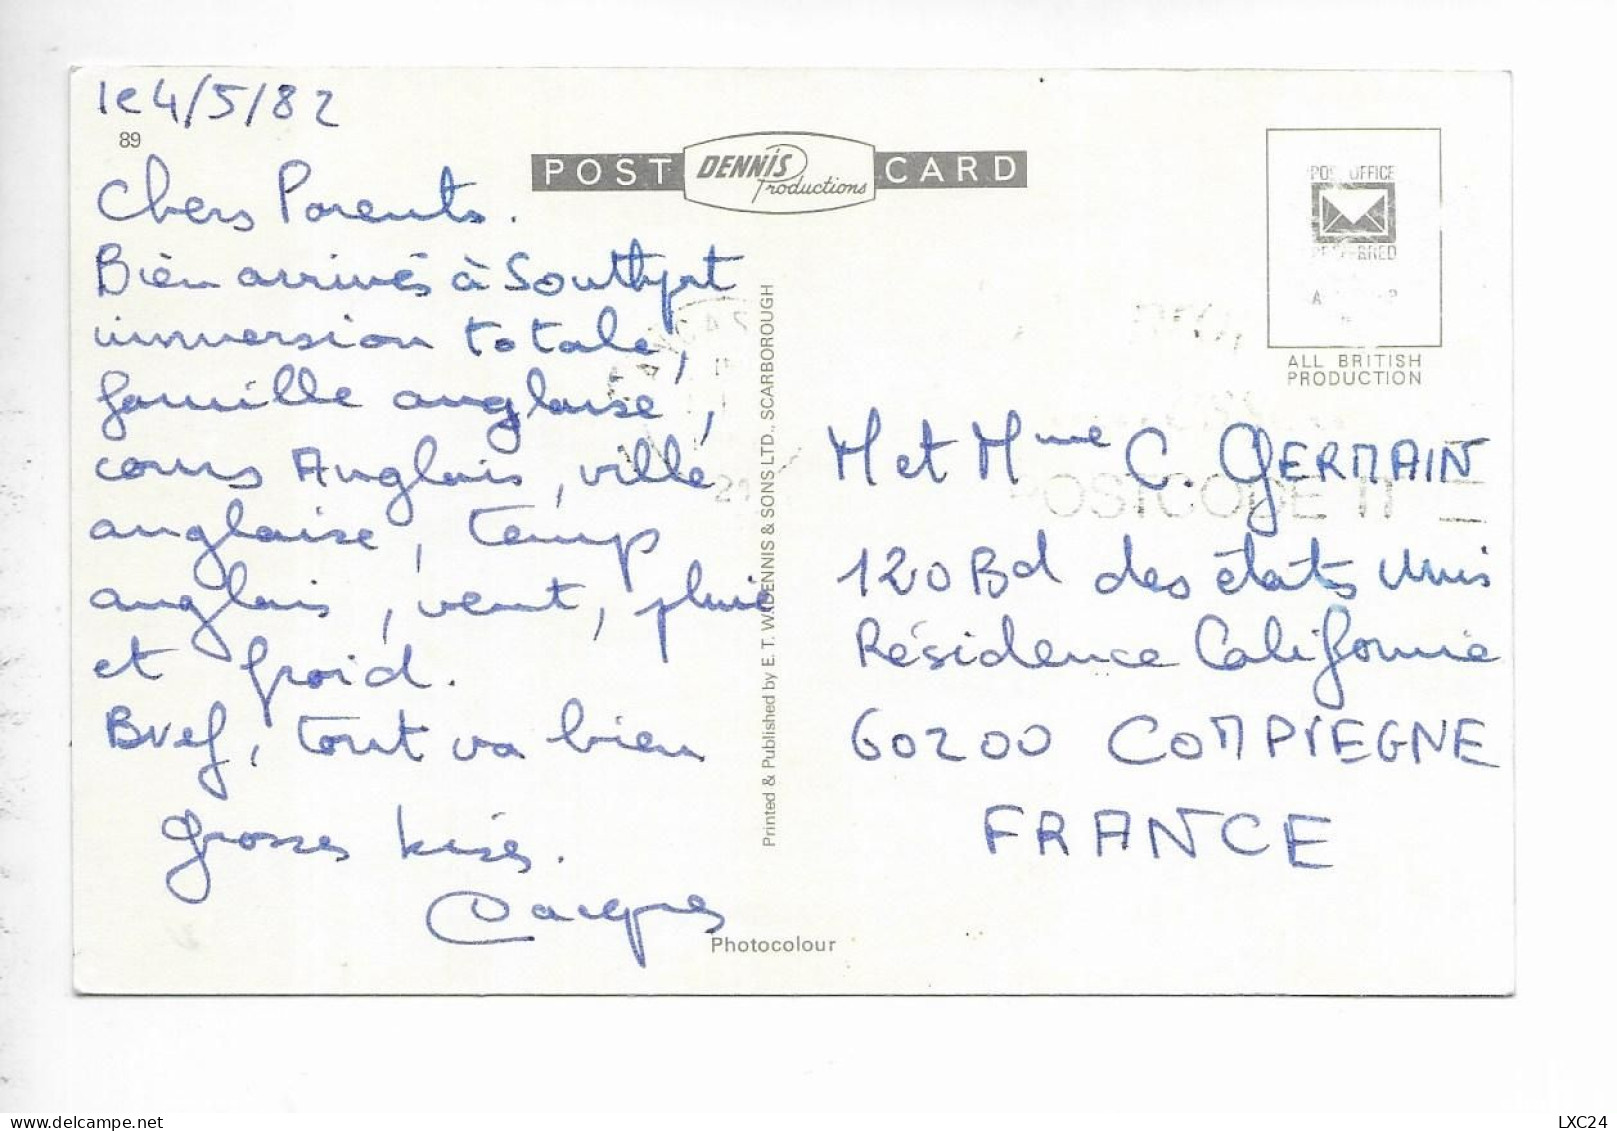 le 4/5/82
89
Chers Parents.
Bien arrivés à Southport
immersion totale,
famille anglaise,
cours Anglais, ville
anglaise, temp
anglais, vent, pluie
et froid.
Bref, tout va bien
grosses bises.
Jacques
POST DENNIS Productions CARD
Printed & Published by E. T. W. DENNIS & SONS LTD., SCARBOROUGH
Photocolour
POST OFFICE
PREFERRED
ALL BRITISH
PRODUCTION
POSTCODE IT
M et Mme C. GERMAIN
120 Bd des états Unis
Résidence Californie
60200 COMPIEGNE
FRANCE
LXC24